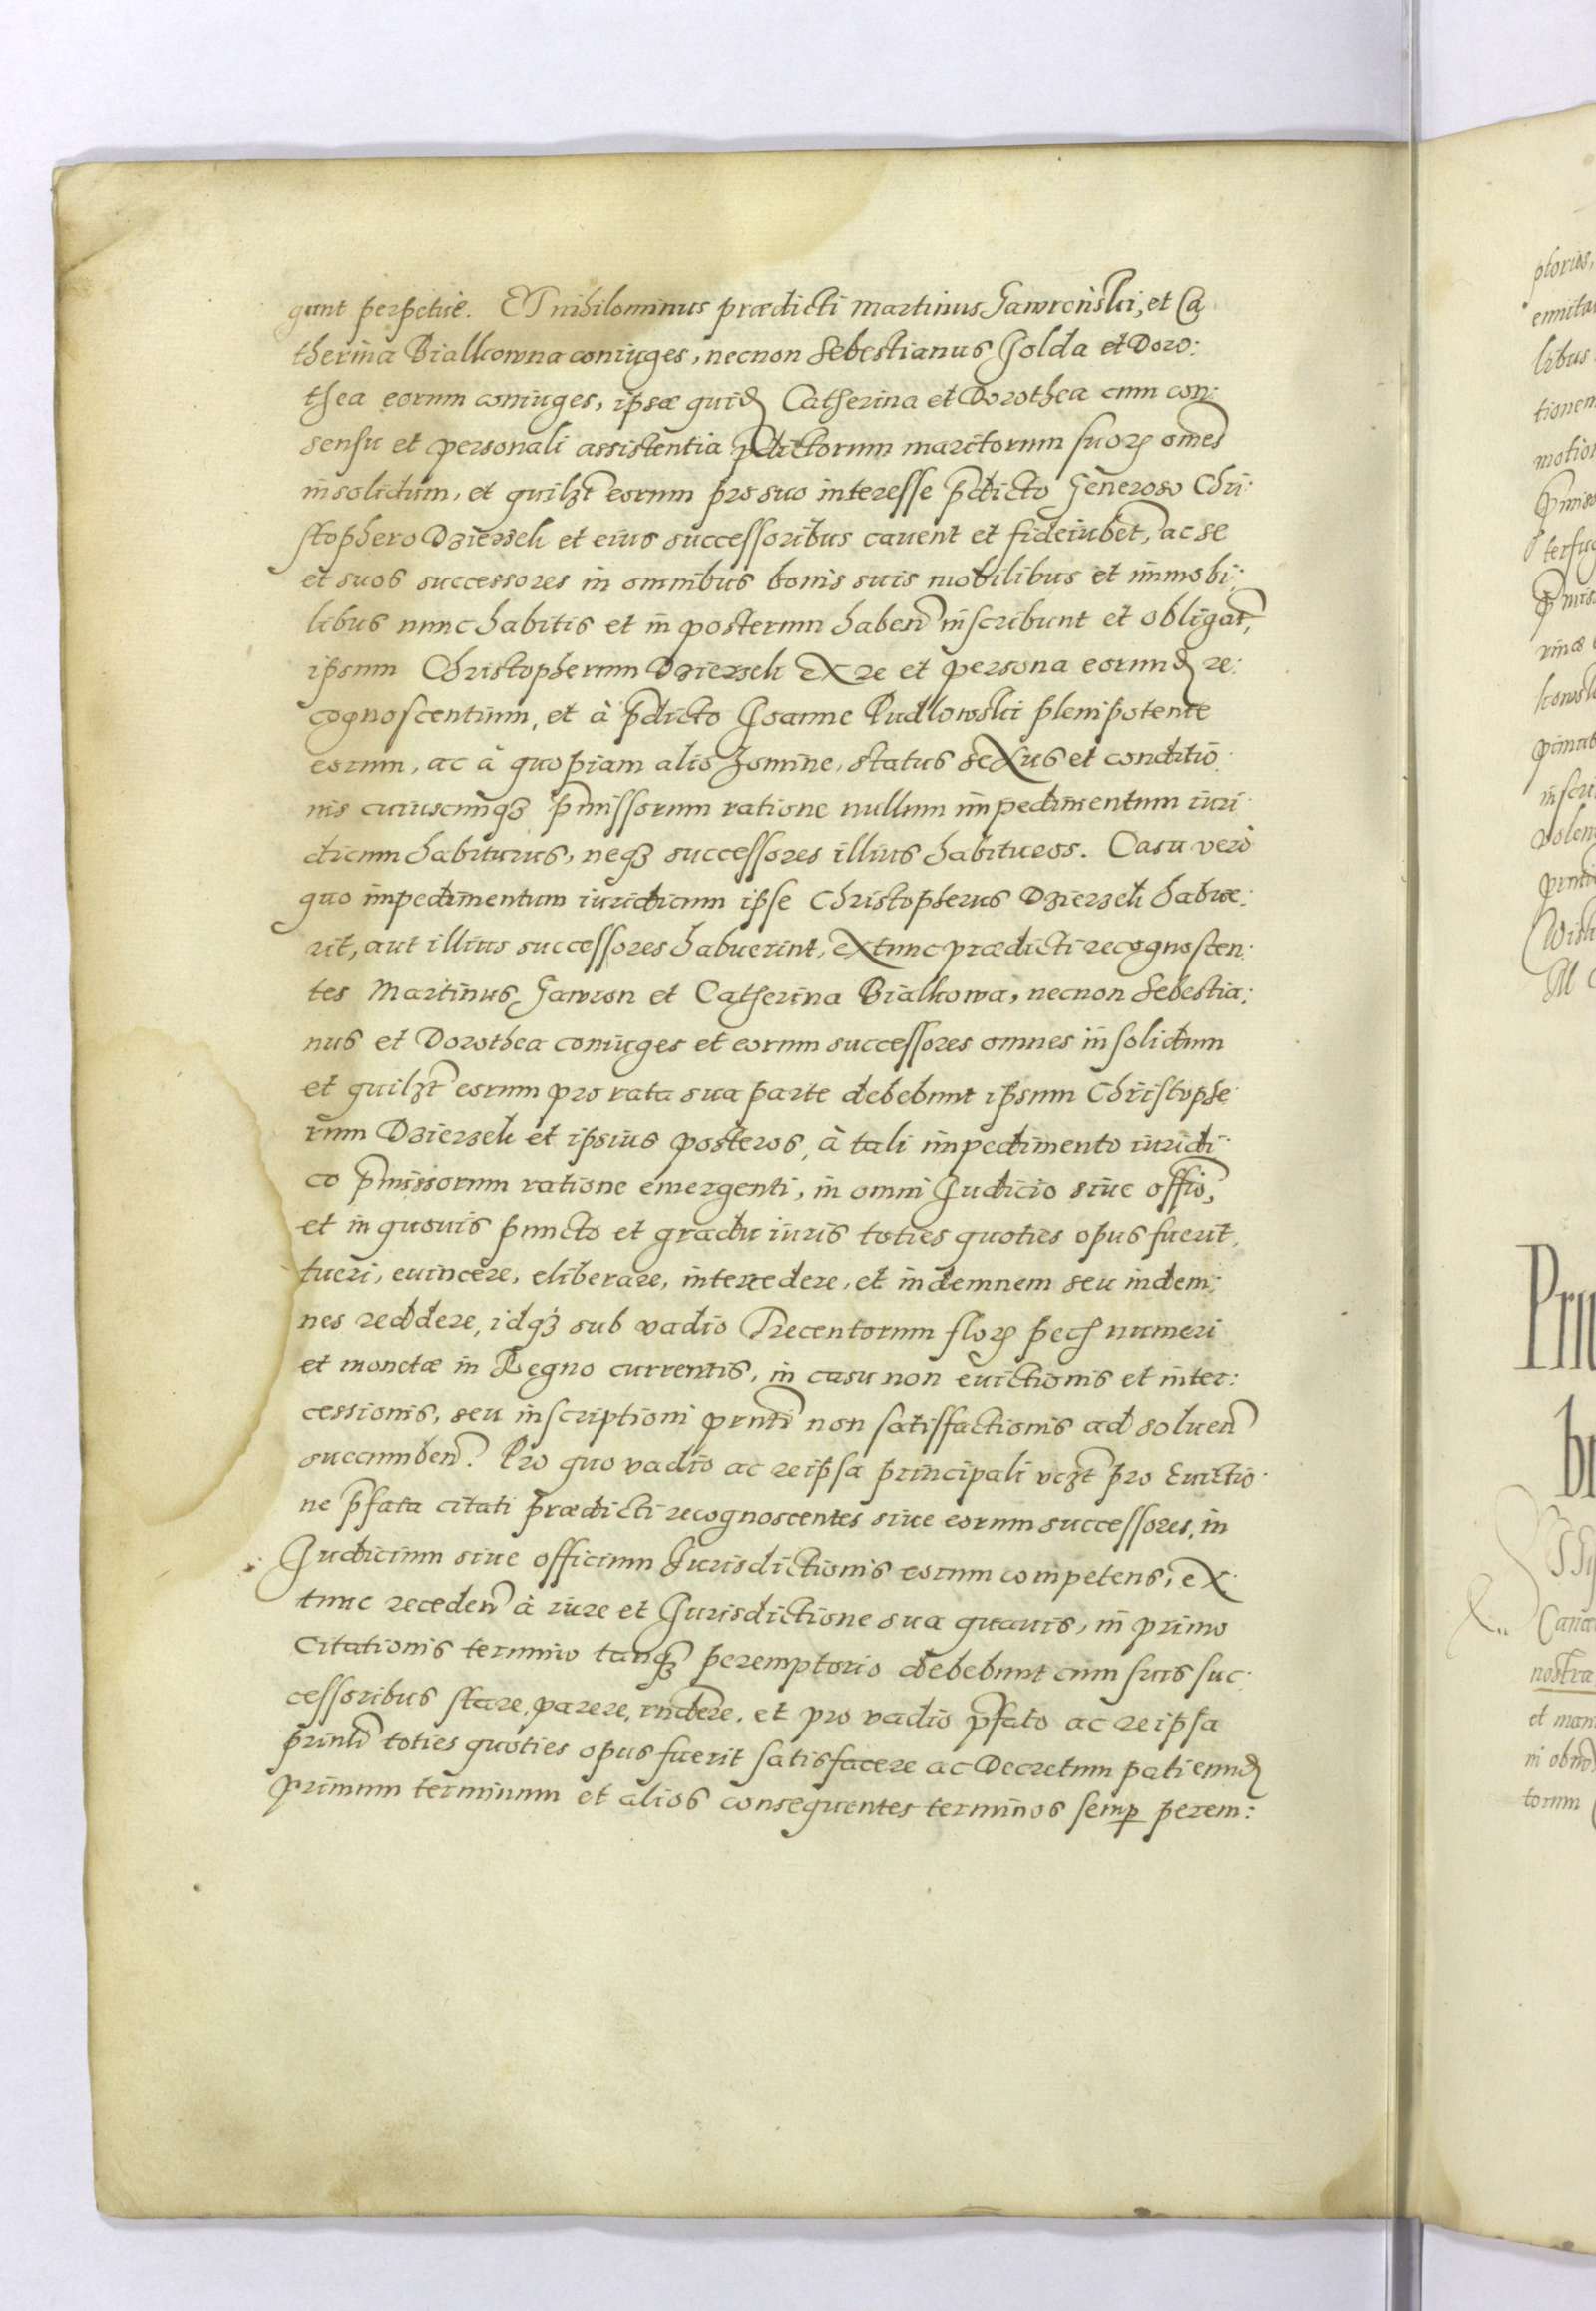 gunt perpetue. Et nihilominus prædicti Martinus Gawronski, et Ca
therina Bialkowna coniuges, necnon Sebestianus Golda et Doro:
thea eorum coniuges, ipsæ quid Catherina et Dorothea cum con:
sensu et personali assistentia pdictorum maritorum suorꝝ om̃es
insolidum, et quilꝫt eorum pro suo interesse p̃dicto Generoso Chri:
stophero Dzierzek et eius successoribus cauent et fideiubet, ac se
et suos successores in omnibus bonis suis mobilibus et immobi:
libus nunc habitis et in posterum haben̄ inscribunt et obligat,
ipsum Christopherum Dzierzek ex re et persona eorund re:
cognoscentium, et à p̃dicto Joanne Pudlowski plenipotente
eorum, ac à quopiam alio homine, status sexus et conditio
nis cuiuscunqꝫ p̃missorum ratione nullum impedimentum iuri
dicum habiturus, neqꝫ successores illius habituros. Casu verò
quo impedimentum iuridicum ipse Christopherus Dzierzek habue:
rit, aut illius successores habuerint, extunc prædicti recognoscen:
tes Martinus Gawron et Catherina Bialkowa, necnon Sebestia:
nus et Dorothea coniuges et eorum successores omnes insolidum
et quilꝫt eorum pro rata sua parte debebunt ipsum Christophe
rum Dzierzek et ipsius posteros, à tali impedimento iuridi
co p̃missorum ratione emergenti, in omni Judicio siue offio,
et in quouis puncto et gradu iuris toties quoties opus fuerit,
tueri, euincere, eliberare, intercedere, et indemnem seu indem:
nes reddere, idqꝫ sub vadio Trecentorum florꝝ pecƒ numeri
et monetæ in Regno currentis, in casu non euictionis et inter:
cessionis, seu inscriptioni prnti non satisfactionis ad soluen̄
succumben̄. Pro quo vadio ac reipsa principali vꝫt pro euictio
ne p̃fata citati prædicti recognoscentes siue eorum successores, in
Judicium siue officium Jurisdictionis eorum competens, ex
tunc receden̄ à iure et Jurisdictione sua quauis, in primo
Citationis termino tanqꝫ peremptorio debebunt cum suis suc:
cessoribus stare, parere, rn̄dere, et pro vadio p̃fato ac reipsa
prinli toties quoties opus fuerit satisfacere ac Decretum pati eund
primum terminum et alios consequentes terminos semꝑ perem: